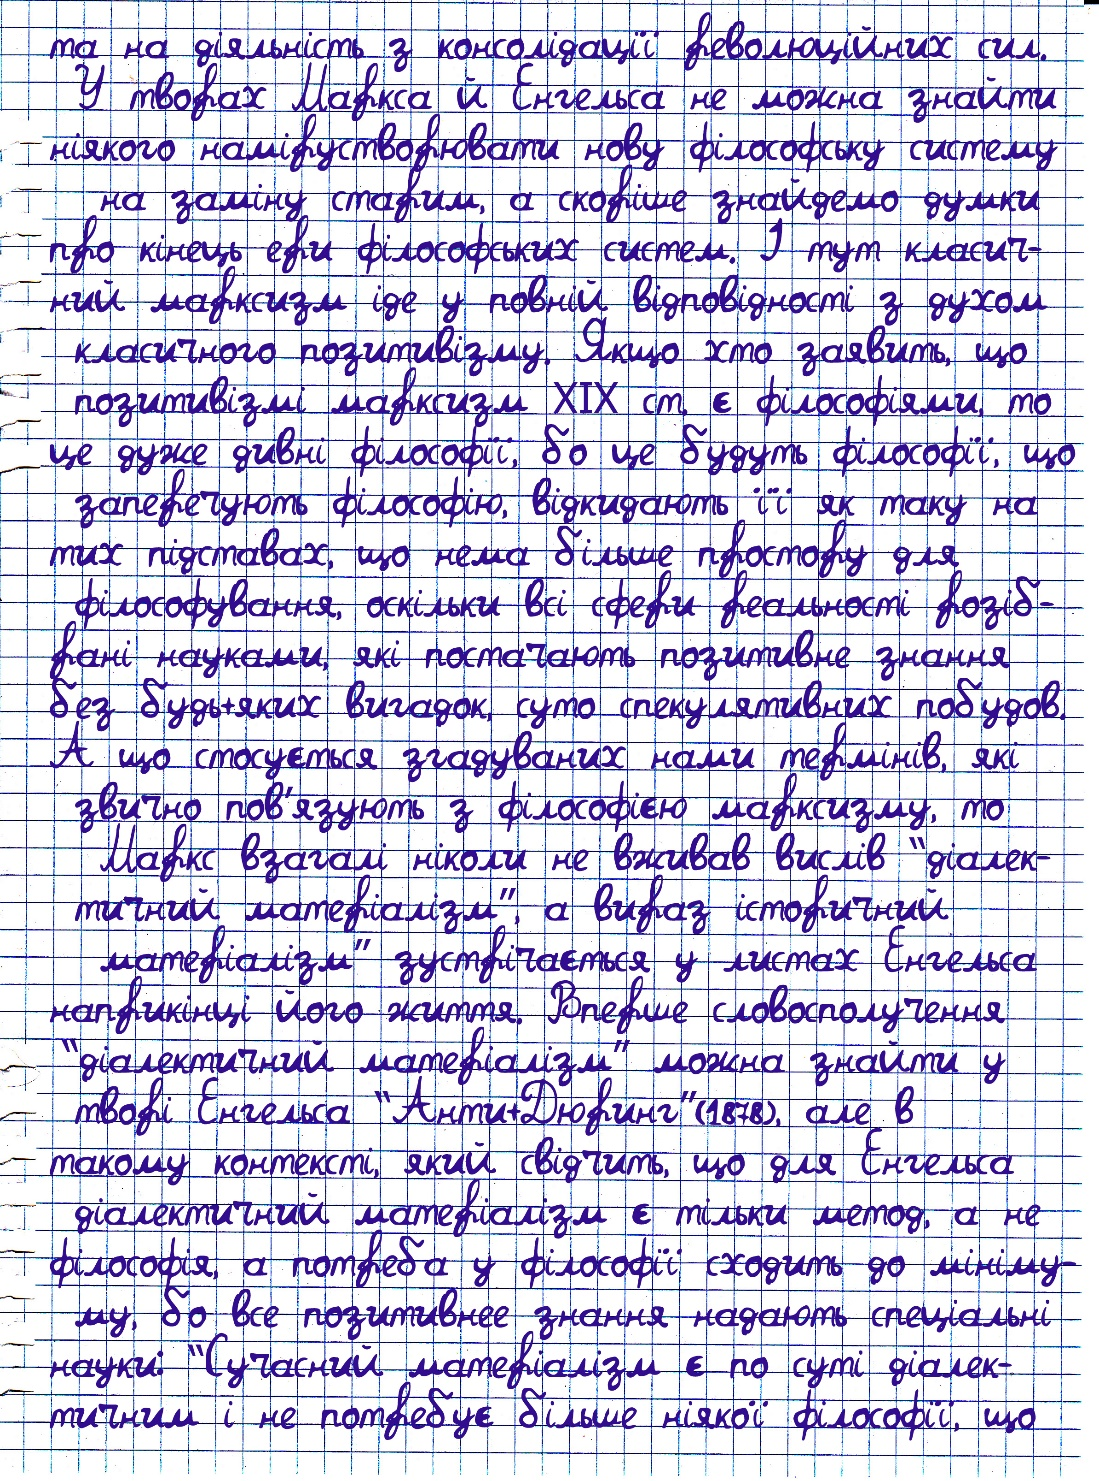 та на діяльність з консолідації революційних сил.
У творах Маркса й Енгельса не можна знайти
ніякого намірустворювати нову філософську систему
на заміну старим, а скоріше знайдемо думки
про кінець ери філософських систем. І тут класич-
ний марксизм іде у повній відповідності з духом
класичного позитивізму. Якщо хто заявить, що
позитивізмі марксизм XIX ст. є філософіями, то
це дуже дивні філософії, бо це будуть філософії, що
заперечують філософію, відкидають її як таку на
тих підставах, що нема більше простору для
філософування, оскільки всі сфери реальності розіб-
рані науками, які постачають позитивне знання
без будь+яких вигадок, суто спекулятивних побудов.
А що стосується згадуваних нами термінів, які
звично пов'язують з філософією марксизму, то
Маркс взагалі ніколи не вживав вислів "діалек-
тичний матеріалізм", а вираз історичний
матеріалізм" зустрічається у листах Енгельса
наприкінці його життя. Вперше словосполучення
"діалектичний матеріалізм" можна знайти у
творі Енгельса "Анти+Дюринг"(1878), але в
такому контексті, який свідчить, що для Енгельса
діалектичний матеріалізм є тільки метод, а не
філософія, а потреба у філософії сходить до мініму-
му, бо все позитивнее знання надають спеціальні
науки: "Сучасний матеріалізм є по суті діалек-
тичним і не потребує більше ніякої філософії, що